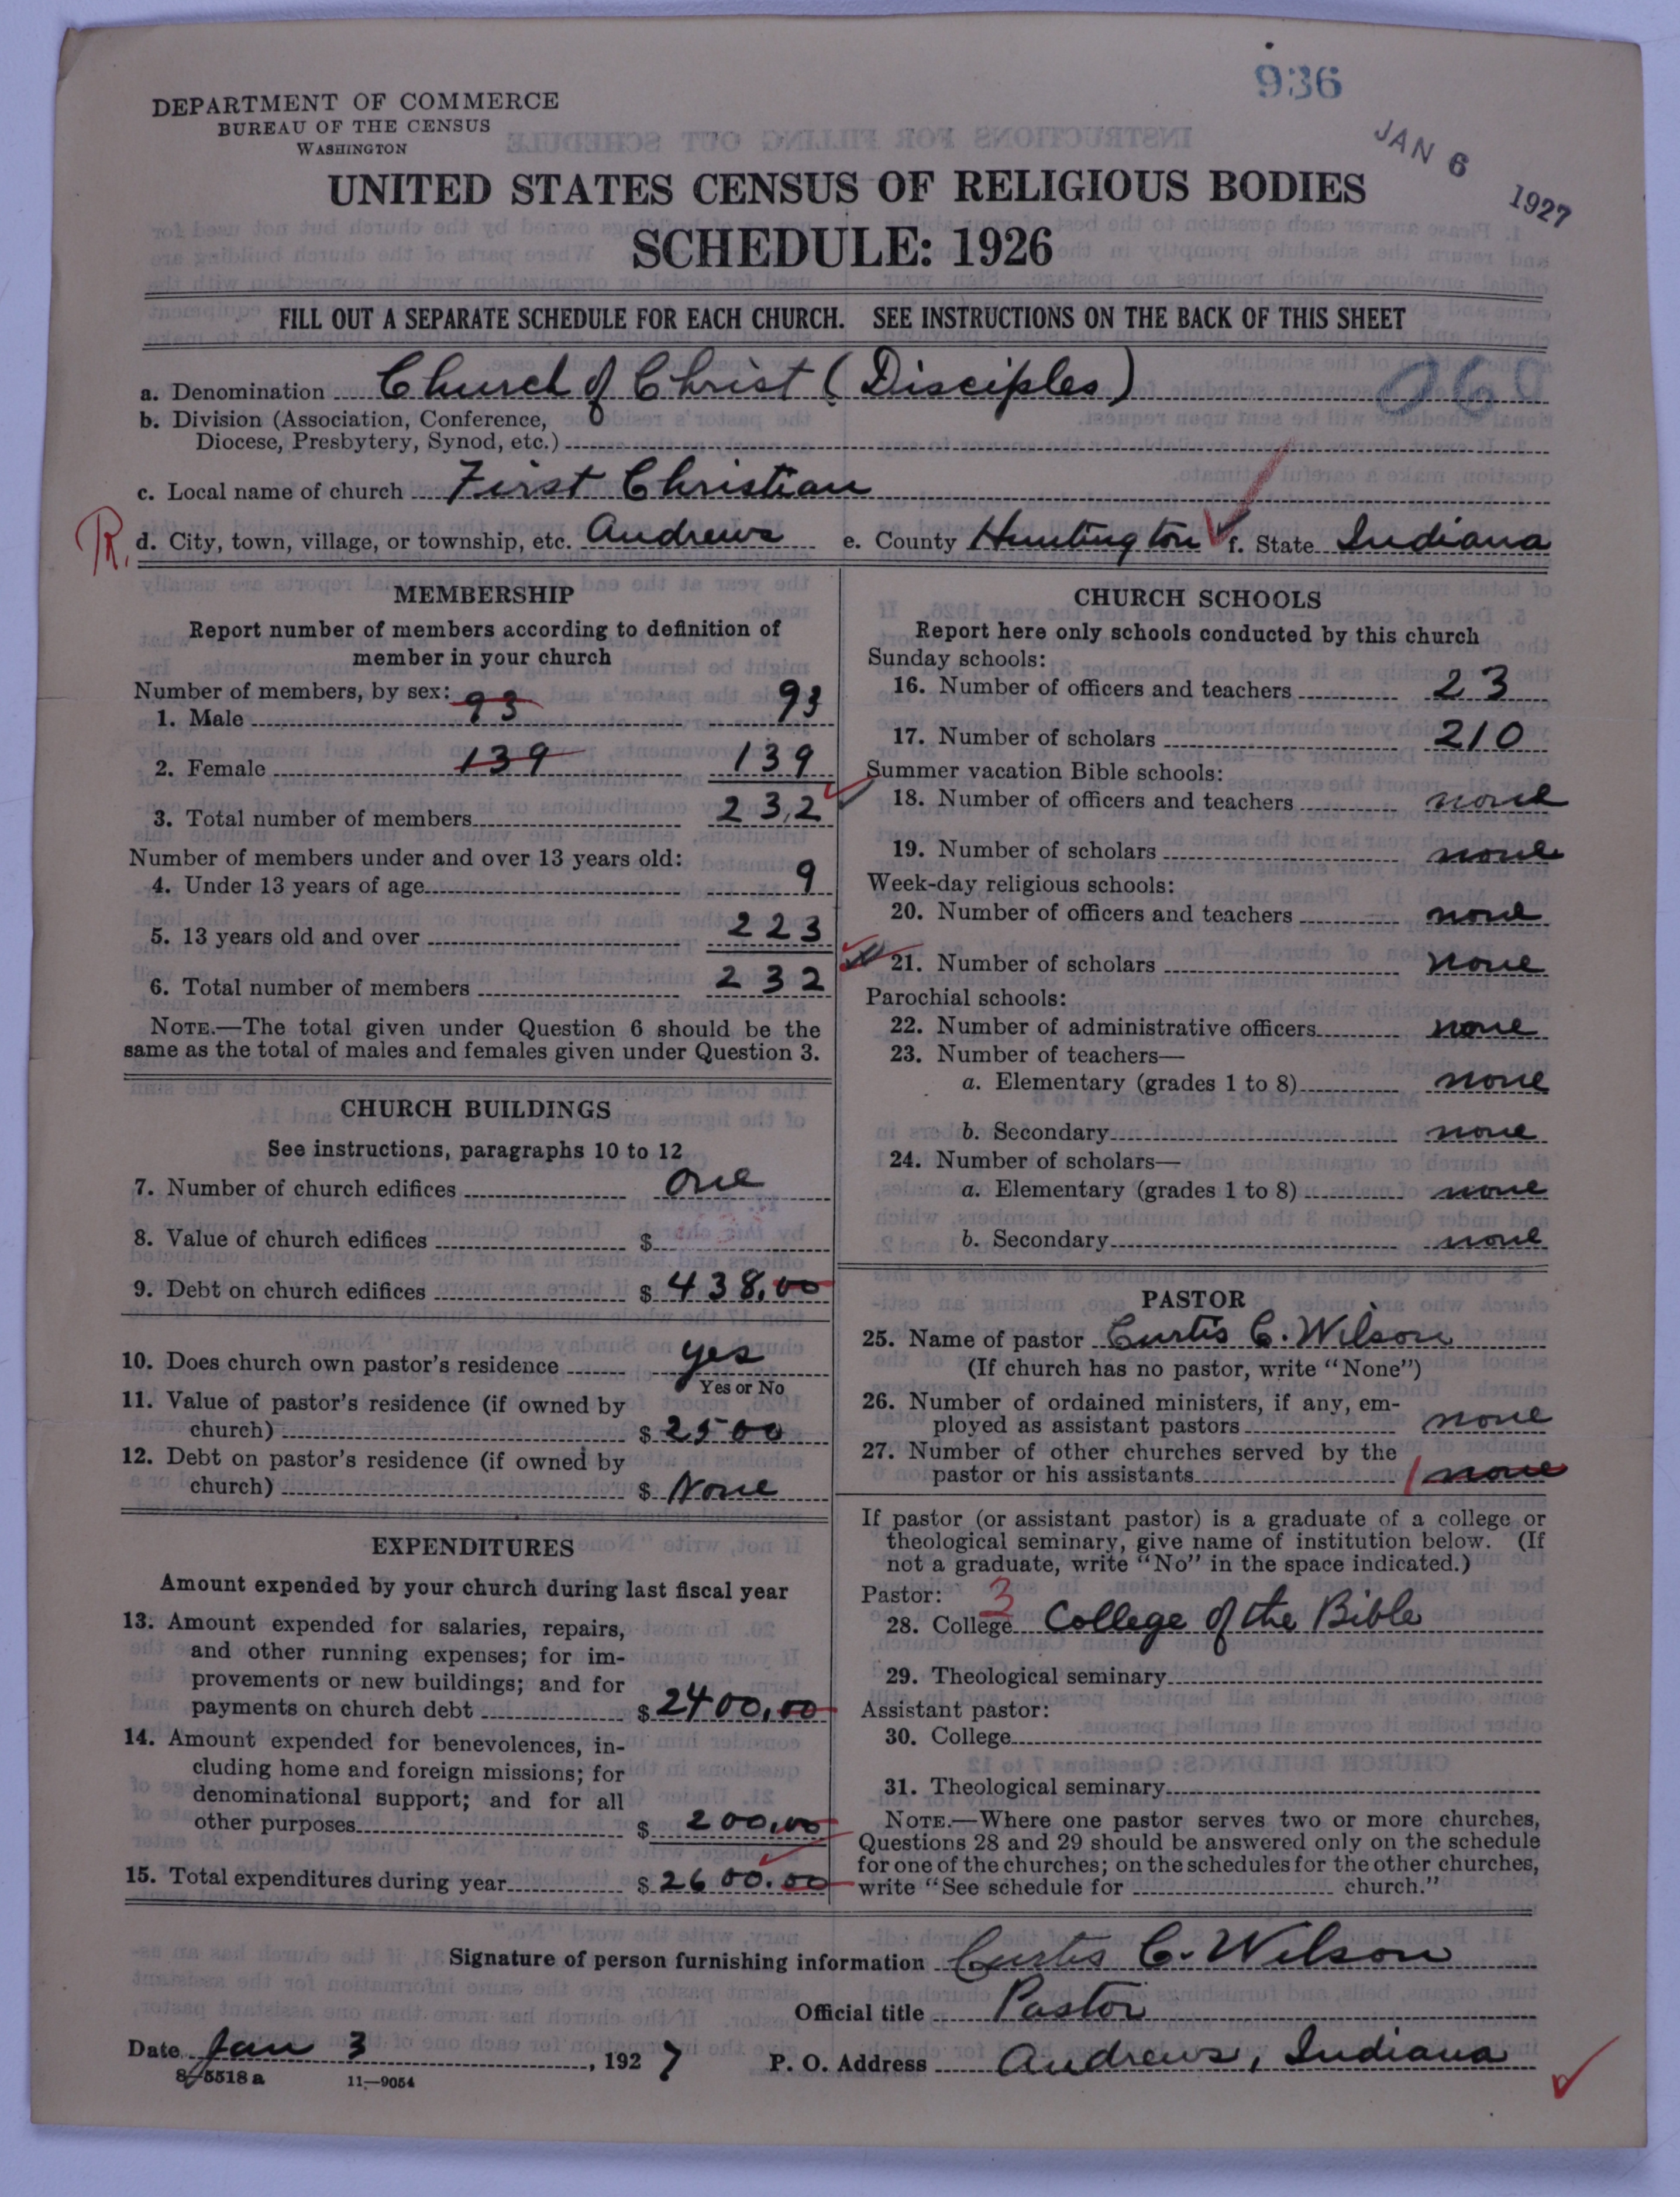 936
JAN 6 1927
DEPARTMENT OF COMMERCE
BUREAU OF THE CENSUS
WASHINGTON
UNITED STATES CENSUS OF RELIGIOUS BODIES
SCHEDULE: 1926
FILL OUT A SEPARATE SCHEDULE FOR EACH CHURCH. SEE INSTRUCTIONS ON THE BACK OF THIS SHEET
a. Denomination Church of Christ (Disciples) 060
b. Division (Association, Conference,
Diocese, Presbytery, Synod, etc.)
c. Local name of church First Christian
R. d. City, town, village, or township, etc. Andrews e. County Huntington f. State Indiana
MEMBERSHIP
Report number of members according to definition of
member in your church
Number of members, by sex: 93
1. Male 93
2. Female 139 139
3. Total number of members 232
Number of members under and over 13 years old:
4. Under 13 years of age 9
5. 13 years old and over 223
6. Total number of members 232
NOTE.—The total given under Question 6 should be the
same as the total of males and females given under Question 3.
CHURCH BUILDINGS
See instructions, paragraphs 10 to 12
7. Number of church edifices one
8. Value of church edifices $
9. Debt on church edifices $ 438.00
10. Does church own pastor's residence yes
Yes or No
11. Value of pastor's residence (if owned by
church) $ 2500
12. Debt on pastor's residence (if owned by
church) $ None
EXPENDITURES
Amount expended by your church during last fiscal year
13. Amount expended for salaries, repairs,
and other running expenses; for im-
provements or new buildings; and for
payments on church debt $ 2400.00
14. Amount expended for benevolences, in-
cluding home and foreign missions; for
denominational support; and for all
other purposes $ 200.00
15. Total expenditures during year $ 2600.00
CHURCH SCHOOLS
Report here only schools conducted by this church
Sunday schools:
16. Number of officers and teachers 23
17. Number of scholars 210
Summer vacation Bible schools:
18. Number of officers and teachers none
19. Number of scholars none
Week-day religious schools:
20. Number of officers and teachers none
21. Number of scholars none
Parochial schools:
22. Number of administrative officers none
23. Number of teachers—
a. Elementary (grades 1 to 8) none
b. Secondary none
24. Number of scholars—
a. Elementary (grades 1 to 8) none
b. Secondary none
PASTOR
25. Name of pastor Curtis C. Wilson
(If church has no pastor, write "None")
26. Number of ordained ministers, if any, em-
ployed as assistant pastors none
27. Number of other churches served by the
pastor or his assistants 1 none
If pastor (or assistant pastor) is a graduate of a college or
theological seminary, give name of institution below. (If
not a graduate, write "No" in the space indicated.)
Pastor: 3
28. College College of the Bible
29. Theological seminary
Assistant pastor:
30. College
31. Theological seminary
NOTE.—Where one pastor serves two or more churches,
Questions 28 and 29 should be answered only on the schedule
for one of the churches; on the schedules for the other churches,
write "See schedule for church."
Signature of person furnishing information Curtis C. Wilson
Official title Pastor
Date Jan 3, 1927 P. O. Address Andrews, Indiana
8-5518a 11-9054